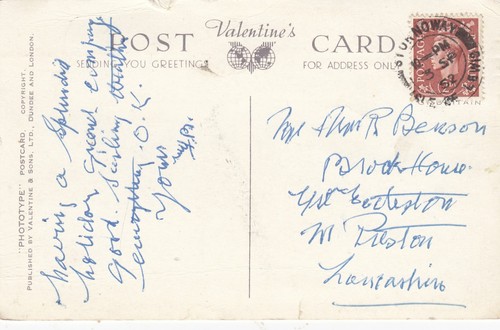 Valentine's
POST CARD
SENDING YOU GREETINGS
FOR ADDRESS ONLY
"PHOTOTYPE" POSTCARD. COPYRIGHT.
PUBLISHED BY VALENTINE & SONS, LTD., DUNDEE AND LONDON.
Having a splendid
holiday, grand company
good. Sailing weather
everything O.K.
Yours
Benson
Brook House
Gt Eccleston
Nr Preston
Lancashire
STORNOWAY
PM
SP
52
POSTAGE